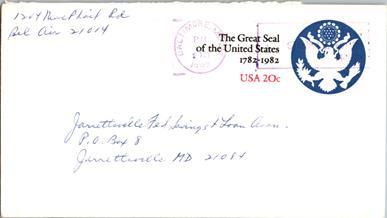 Bel Air 21014
BALTIMORE, MD
PM
The Great Seal
of the United States
1782-1982
USA 20c
Jarrettsville Fed Savings & Loan Assn.
P.O. Box 8
Jarrettsville MD 21084